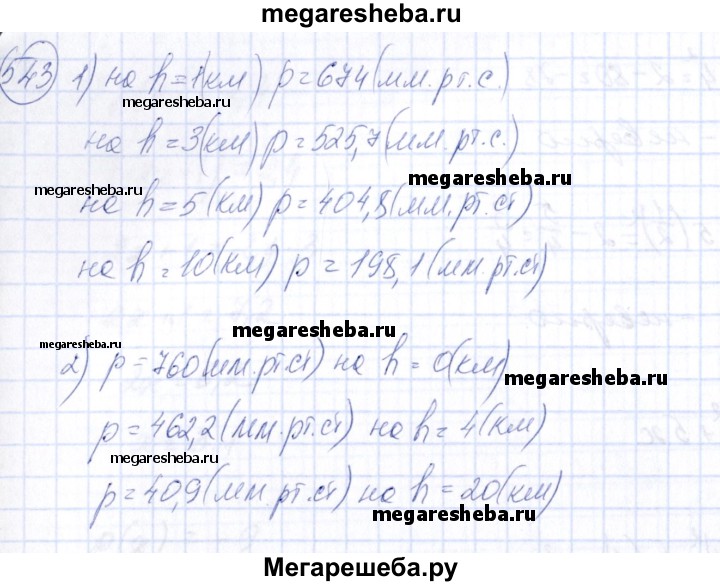 megaresheba.ru
543 1) на h=1(км) p=674(мм.рт.с.)
megaresheba.ru
на h=3(км) p=525,7(мм.рт.с.)
megaresheba.ru
megaresheba.ru
на h=5(км) p=404,8(мм.рт.ст)
на h=10(км) p=198,1(мм.рт.ст)
megaresheba.ru
megaresheba.ru
2) p=760(мм.рт.ст) на h=0(км)
megaresheba.ru
p=462,2(мм.рт.ст) на h=4(км)
megaresheba.ru
p=40,9(мм.рт.ст) на h=20(км)
megaresheba.ru
Мегарешеба.ру